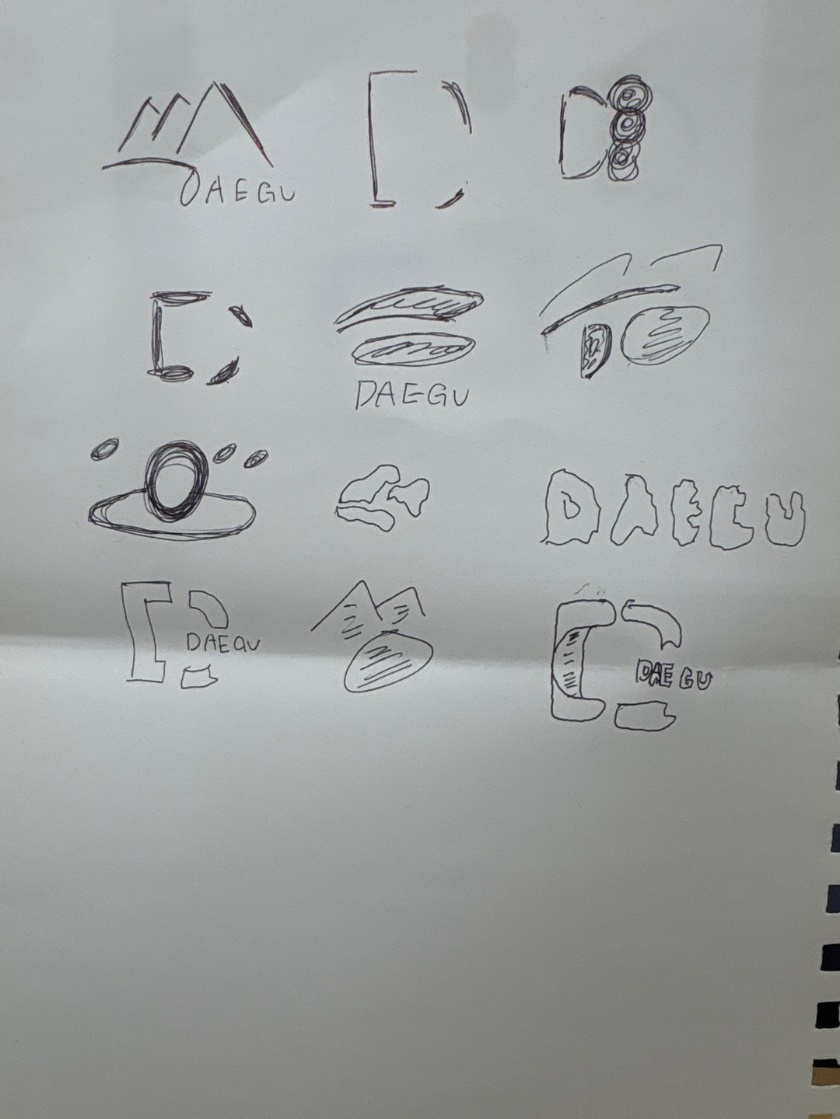 DAEGU
DAEGU
DAEGU
DAEGU
DAEGU